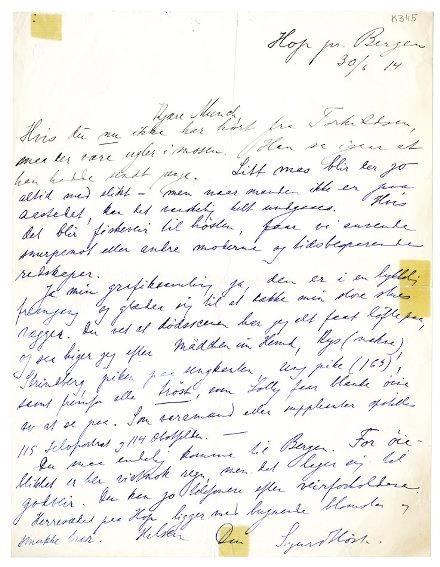 K345
Hop pr. Bergen
30/6 14
Kjære Munch
Hvis du nu ikke har hørt fra Torkildsen,
maa der være ugler i mosen. Han sa igaar at
han hadde sendt
Litt mas blir der jo
altid med slikt – men naar manden ikke er paa
aastedet, kan det vanskelig helt undgaaes. Hvis
det blir fiskeri til høsten, faar vi anvende
snurpenot eller andre moderne og tidsbesparende
redskaper.
Ja min grafiksamling ja, den er i en lykkelig
fremgang og glæder sig til at dække min store stues
vægge. Du vet at dødsscenen har jeg alt faat løfte paa,
og nu higer jeg efter Mädchen im Hemd, Kys (
Strindberg, piken paa sengkanten, ung pike (164),
samt fremfor alle Trøst, som Lolly faar blanke øine
av at se paa. Som varamænd eller supplenter opstilles
115 Selvportræt og 114
Du maa endelig komme til Bergen. For øie-
blikket er her vistnok regn, men det lager sig til
godveir. Du kan jo telefonere efter veirforholdene.
Herresædet paa Hop ligger med bugnende blomster og
smukke trær. Hilsen Din Sigurd Høst.